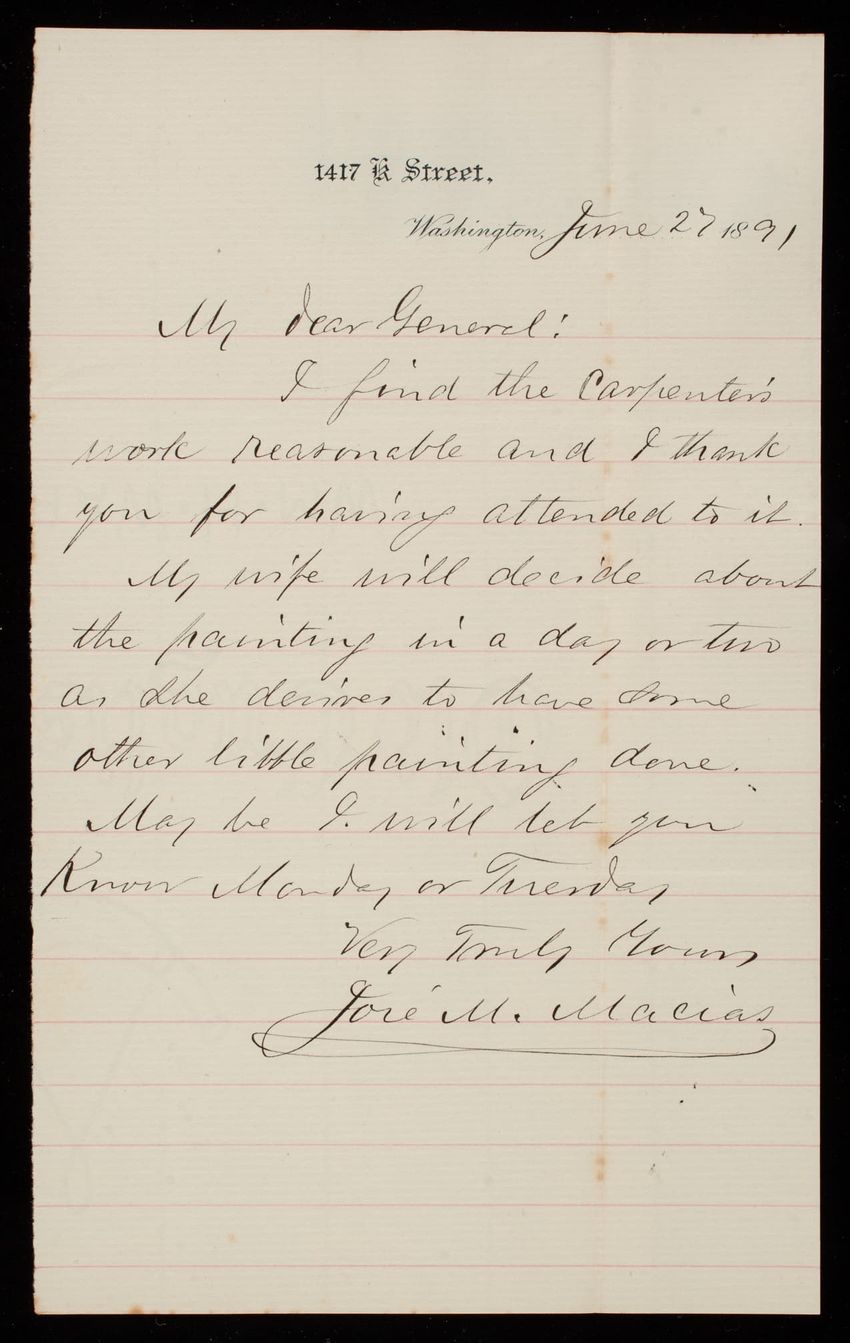 1417 K Street.
Washington, June 27 1891
My dear General:
I find the Carpenter's
work reasonable and I thank
you for having attended to it.
My wife will decide about
the painting in a day or two
as she desires to have some
other little painting done.
May be I will let you
Know Monday or Tuesday
Very Truly Yours
José M. Macias